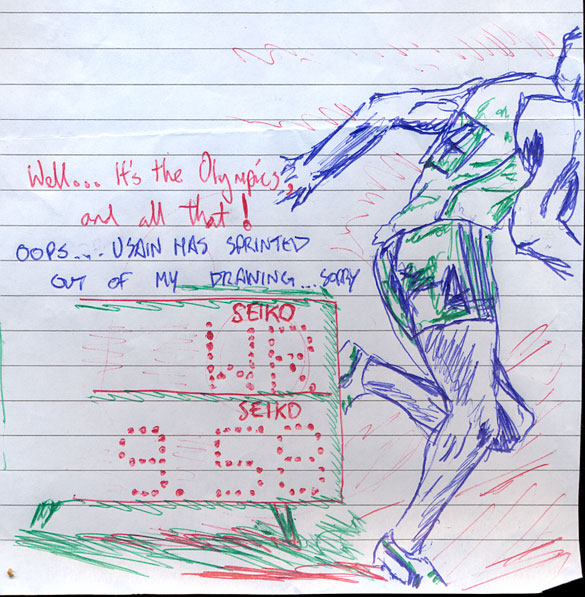 Well... It's the Olympics,
and all that!
OOPS... USAIN HAS SPRINTED
OUT OF MY DRAWING... SORRY
SEIKO
WR
SEIKO
9